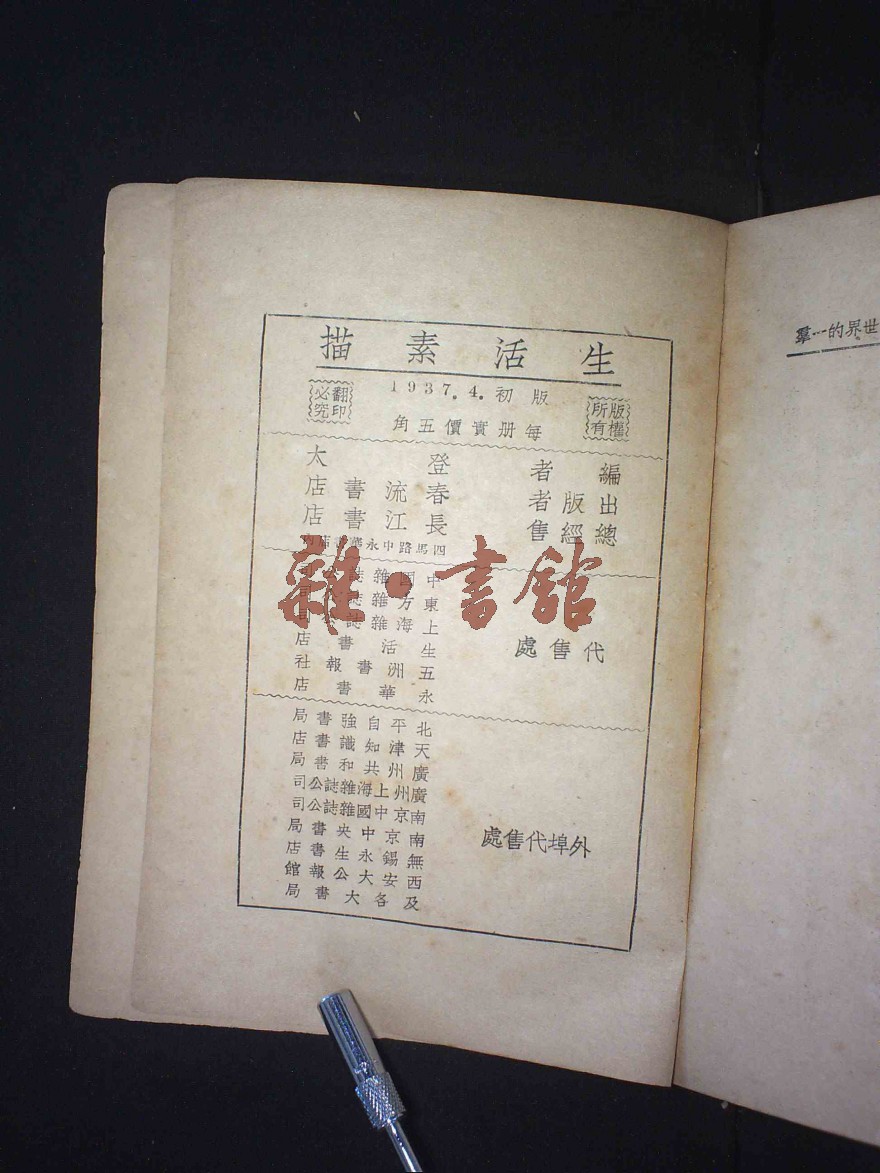 生活素描
版權
所有
1937.4.初版
翻印
必究
每册實價五角
編者 登太
出版者 春流書店
總經售 長江書店
四馬路中永華書店內
代售處
中國雜誌公司
東方雜誌公司
上海雜誌公司
生活書店
五洲書報社
永華書店
外埠代售處
北平自強書局
天津知識書店
廣州共和書局
廣州上海雜誌公司
南京中國雜誌公司
南京中央書局
無錫永生書店
西安大公報館
及各大書局
雜·書館
世界的一羣